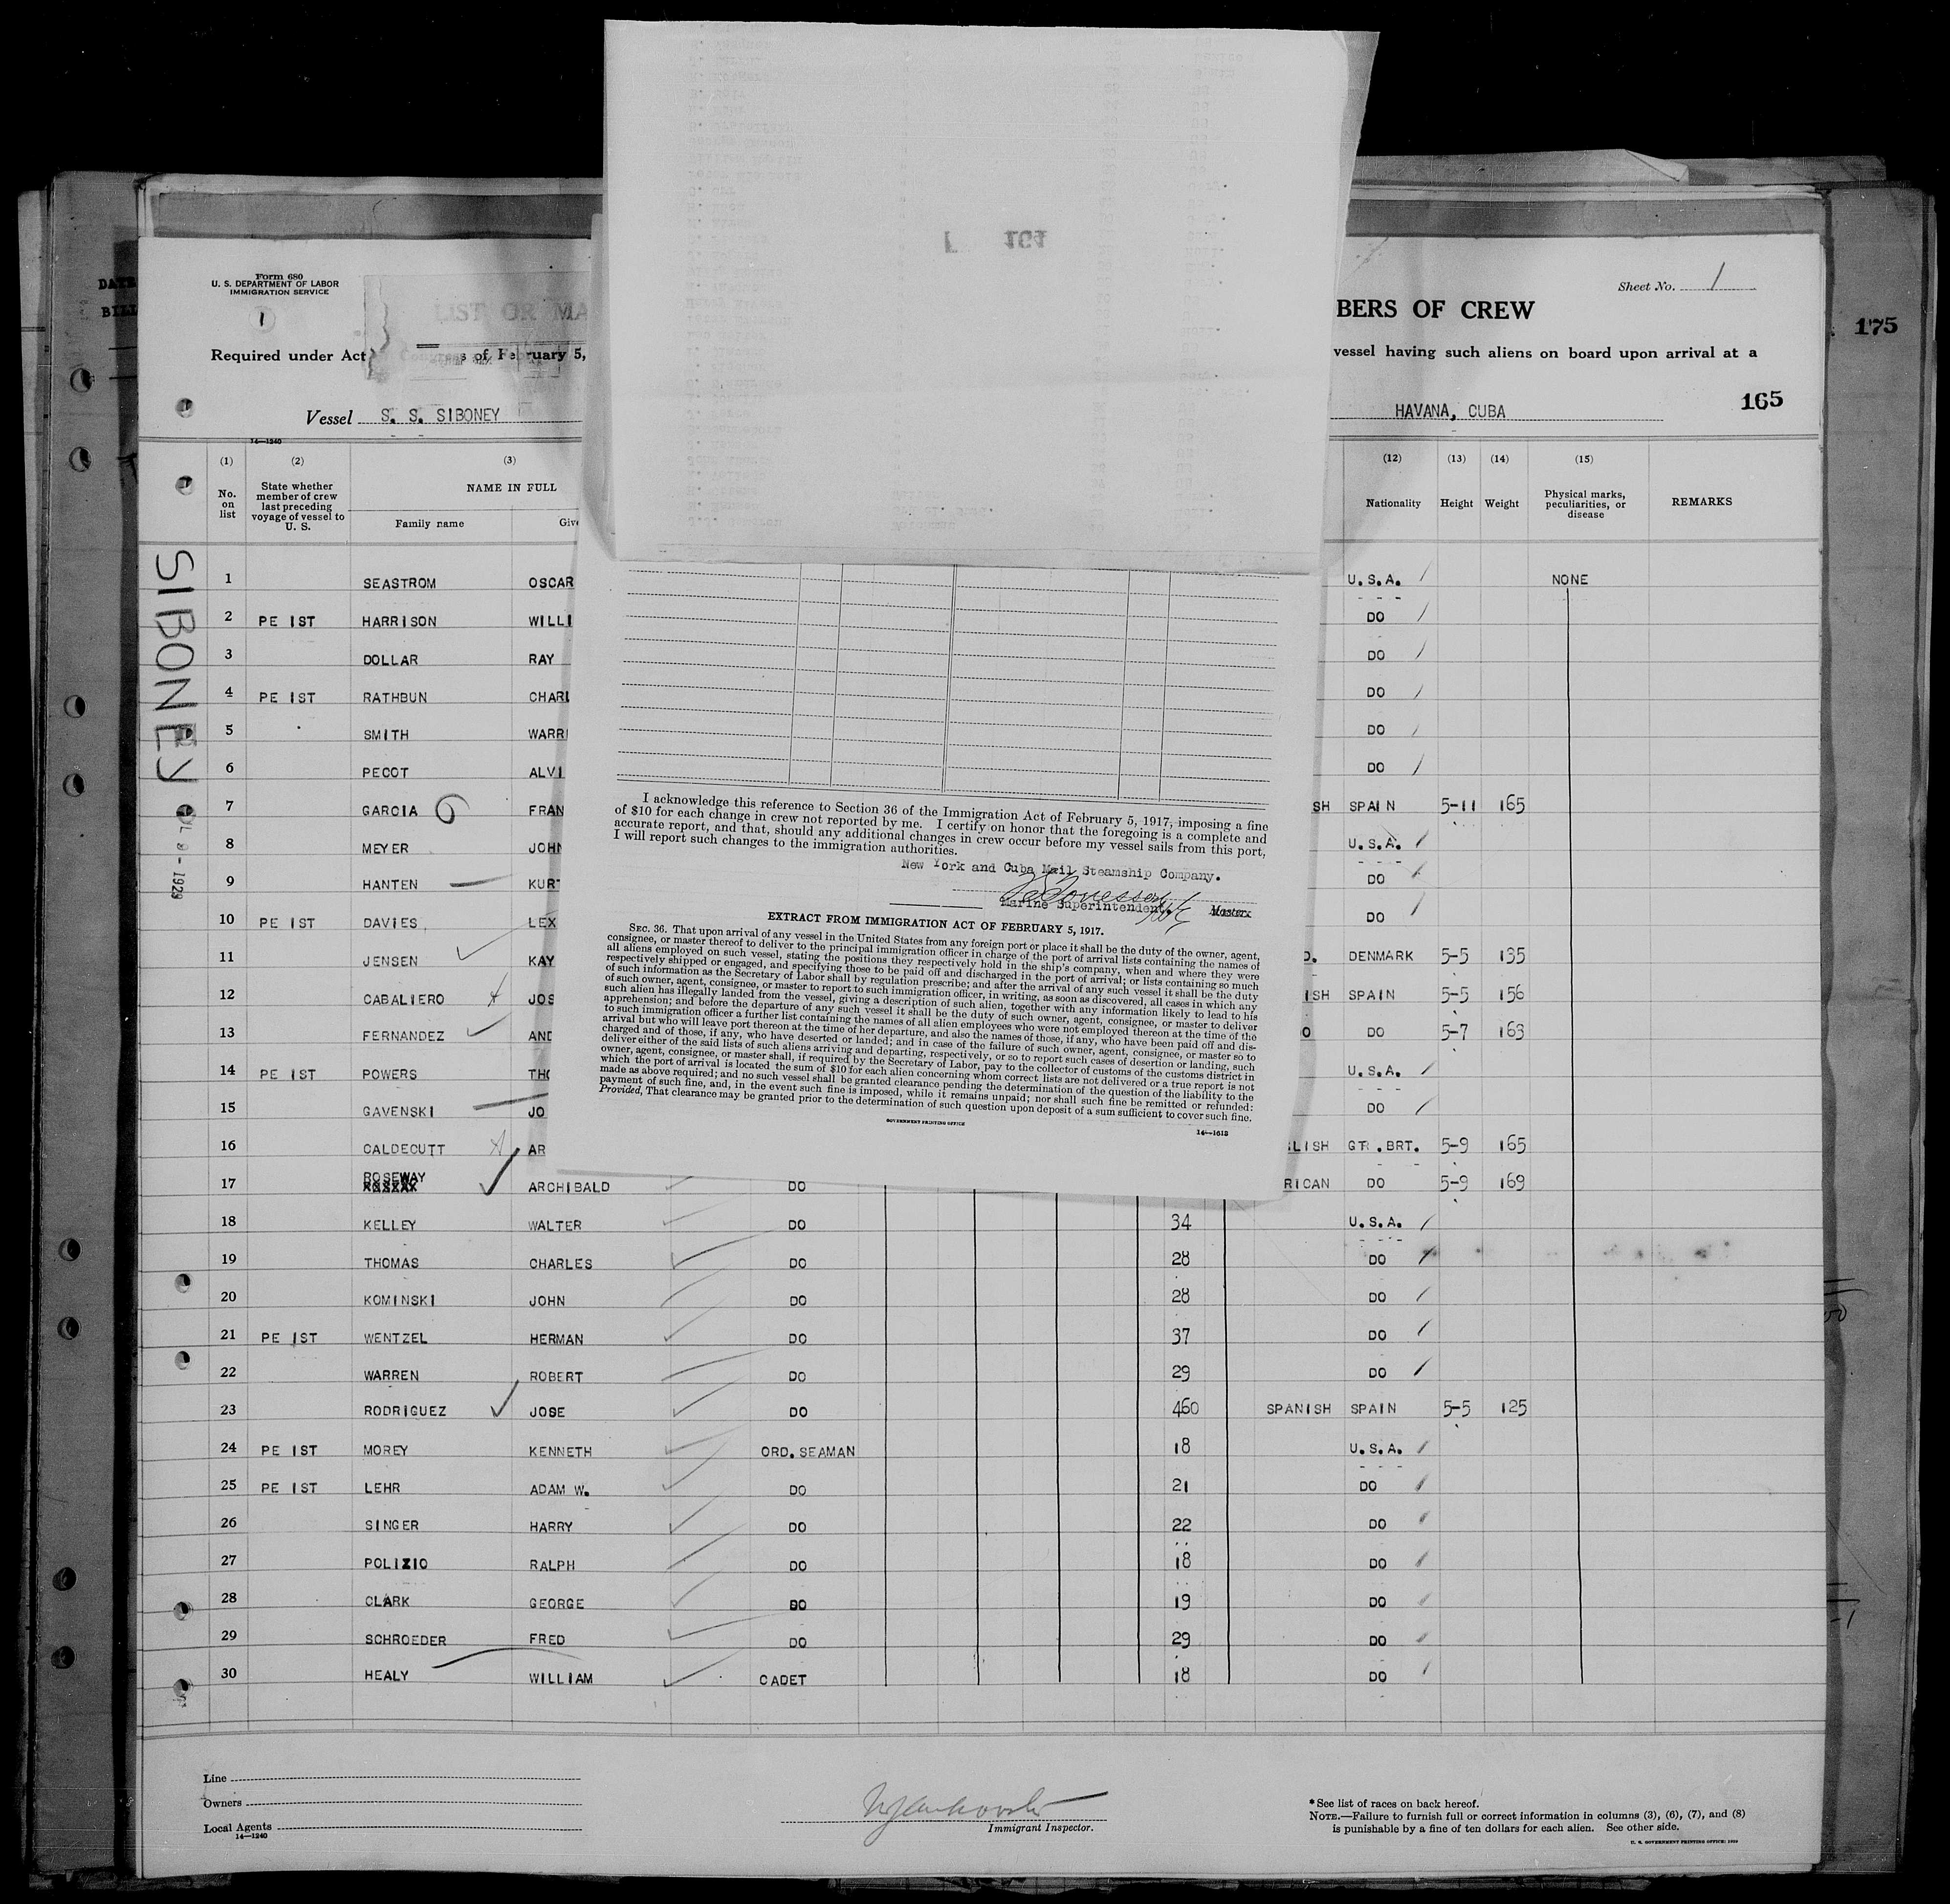 Form 680
U. S. DEPARTMENT OF LABOR
IMMIGRATION SERVICE
1
LIST OR MA
BERS OF CREW
Sheet No. 1
175
Required under Act Congress of February 5,
vessel having such aliens on board upon arrival at a
Vessel S. S. SIBONEY
HAVANA, CUBA
165
14—1240
(1) (2) (3) (12) (13) (14) (15)
No. on list
State whether member of crew last preceding voyage of vessel to U. S.
NAME IN FULL
Family name
Nationality Height Weight
Physical marks, peculiarities, or disease
REMARKS
SIBONEY
1929
1 SEASTROM OSCAR U.S.A. NONE
2 PE IST HARRISON WILLI DO
3 DOLLAR RAY DO
4 PE IST RATHBUN CHARL DO
5 SMITH WARR DO
6 PECOT ALVI DO
7 GARCIA 6 FRAN SH SPAIN 5-11 165
8 MEYER JOHN U.S.A.
9 HANTEN KURT DO
10 PE IST DAVIES LEX DO
11 JENSEN KAY D. DENMARK 5-5 135
12 CABALIERO JOS ISH SPAIN 5-5 156
13 FERNANDEZ AND O DO 5-7 163
14 PE IST POWERS THO U.S.A.
15 GAVENSKI JO DO
16 CALDECUTT AR LISH GT.BRT. 5-9 165
17 ROSEWAY ARCHIBALD DO RICAN DO 5-9 169
18 KELLEY WALTER DO 34 U.S.A.
19 THOMAS CHARLES DO 28 DO
20 KOMINSKI JOHN DO 28 DO
21 PE IST WENTZEL HERMAN DO 37 DO
22 WARREN ROBERT DO 29 DO
23 RODRIGUEZ JOSE DO 460 SPANISH SPAIN 5-5 125
24 PE IST MOREY KENNETH ORD.SEAMAN 18 U.S.A.
25 PE IST LEHR ADAM W. DO 21 DO
26 SINGER HARRY DO 22 DO
27 POLIZIO RALPH DO 18 DO
28 CLARK GEORGE DO 19 DO
29 SCHROEDER FRED DO 29 DO
30 HEALY WILLIAM CADET 18 DO
I acknowledge this reference to Section 36 of the Immigration Act of February 5, 1917, imposing a fine
of $10 for each change in crew not reported by me. I certify on honor that the foregoing is a complete and
accurate report, and that, should any additional changes in crew occur before my vessel sails from this port,
I will report such changes to the immigration authorities.
New York and Cuba Mail Steamship Company.
Marine Superintendent. Master.
EXTRACT FROM IMMIGRATION ACT OF FEBRUARY 5, 1917.
SEC. 36. That upon arrival of any vessel in the United States from any foreign port or place it shall be the duty of the owner, agent,
consignee, or master thereof to deliver to the principal immigration officer in charge of the port of arrival lists containing the names of
all aliens employed on such vessel, stating the positions they respectively hold in the ship's company, when and where they were
respectively shipped or engaged, and specifying those to be paid off and discharged in the port of arrival; or lists containing so much
of such information as the Secretary of Labor shall by regulation prescribe; and after the arrival of any such vessel it shall be the duty
of such owner, agent, consignee, or master to report to such immigration officer, in writing, as soon as discovered, all cases in which any
such alien has illegally landed from the vessel, giving a description of such alien, together with any information likely to lead to his
apprehension; and before the departure of any such vessel it shall be the duty of such owner, agent, consignee, or master to deliver
to such immigration officer a further list containing the names of all alien employees who were not employed thereon at the time of the
arrival but who will leave port thereon at the time of her departure, and also the names of those, if any, who have been paid off and dis-
charged and of those, if any, who have deserted or landed; and in case of the failure of such owner, agent, consignee, or master so to
deliver either of the said lists of such aliens arriving and departing, respectively, or so to report such cases of desertion or landing, such
owner, agent, consignee, or master shall, if required by the Secretary of Labor, pay to the collector of customs of the customs district in
which the port of arrival is located the sum of $10 for each alien concerning whom correct lists are not delivered or a true report is not
made as above required; and no such vessel shall be granted clearance pending the determination of the question of the liability to the
payment of such fine, and, in the event such fine is imposed, while it remains unpaid; nor shall such fine be remitted or refunded:
Provided, That clearance may be granted prior to the determination of such question upon deposit of a sum sufficient to cover such fine.
GOVERNMENT PRINTING OFFICE
14—1613
Line
Owners
Local Agents
14—1240
Immigrant Inspector.
*See list of races on back hereof.
NOTE.—Failure to furnish full or correct information in columns (3), (6), (7), and (8)
is punishable by a fine of ten dollars for each alien. See other side.
U. S. GOVERNMENT PRINTING OFFICE: 1929